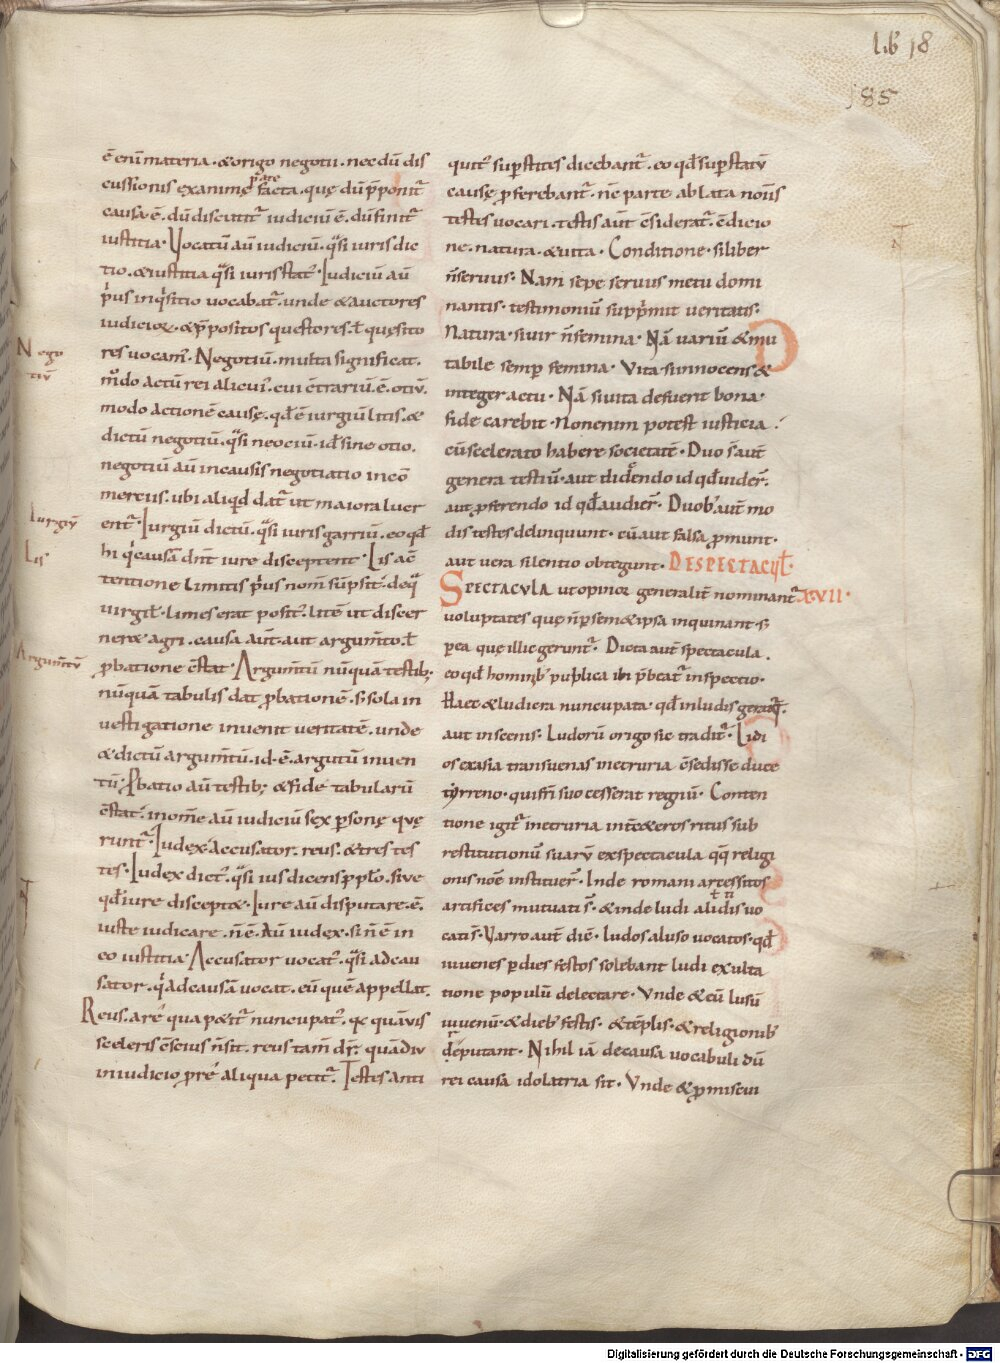 Lib 18
185
ē enī materia · & origo negotii · nec dū dis
cussionis examine facta · quę dū p̄ponit᷑
pare
causa ē · dū discutit᷑ iudiciū ē · dū finit᷑
iustitia · Vocatū aū iudiciū · qͣsi iuris dic
tio · & iustitia qͣsi iuris stat᷒ · Iudiciū aū
pͥus inqͥsitio uocabat᷑ · unde & auctores
iudicioꝝ · & p̄positos questores · ł quęsito
res uocam᷒ · Negotiū · multa significat ·
Nego
tiū
m̊do actū rei alicui᷒ · cui c̄trariū · ē · otiū ·
modo actionē causę · qđ ē iurgiū litis · &
dictū negotiū · qͣsi nec ociū · id ÷ sine otio ·
negotiū aū in causis negotiatio in cō
merciis · ubi aliqͥd dat᷑ ut maiora lucr
ent᷑ · Iurgiū dictū · qͣsi iuris garriū · eo qđ
Iurgiū
hi qͥ causā dn̄t iure disceptent · Lis a c̄
Lis
tentione limitis pͥus nom̄ sūpsit · de qͣ
uirgił · limes erat posit᷒ · litē ut discer
ner& agri · causa aūt · aut argum̄to · ł
ꝓbatione c̄stat · Argum̄tū nūquā testib; ·
Argumētū
nūquā tabulis dat ꝓbationē · s; sola in
uestigatione inuenit ueritatē · unde
& dictū argum̄tū · id · ē · argutū inuen
tū · Ꝓbatio aū testib; & fide tabularū
c̄stat · in om̄e aū iudiciū sex ꝑsonę quę
runt᷑ · Iudex · Accusator · reus · & tres tes
tes · Iudex dict᷒ · qͣsi ius dicens ꝓplo · siue
qđ iure discept& · Iure aū disputare · ē ·
iuste iudicare · n̄ ē · Aū iudex · si n̄ ē in
eo iustitia · Accusator uocat᷒ · qͣsi adcau
sator · qͥ ad causā uocat · eū quē appellat ·
Reus · a re᷒ qua p&it᷑ nuncupat᷒ · qꝛ quāuis
sceleris c̄scius n̄ sit · reus tam̄ dr̄ · quādiu
in iudicio ꝓ re᷒ aliqua petit᷑ · Testes anti
quit᷒ suꝑstites dicebant᷑ · eo qđ suꝑ statū
causę ꝓferebant᷑ · nc̄ parte ablata nom̄is
testes uocari · testis aūt c̄siderat᷑ · c̄dicio
ne · natura · & uita · Conditione · si liber
n̄ seruus · Nam sepe seruus metu domi
nantis · testimoniū suppͥmit ueritatis ·
Natura · si uir n̄ femina · Nā uariū & mu
tabile semꝑ femina · Vita si innocens &
integer actu · Nā si uita defuerit bona ·
fide carebit · Non enim potest iusticia
cū scelerato habere societatē · Duo s̄ aūt
genera testiū · aut dicdendo id qđ uider̄ ·
aut ꝓferendo id qđ audier̄ · Duob᷒ aūt mo
dis testes delinquunt · cū aut falsa ꝓmunt ·
aut uera silentio obtegunt · DE SPECTACUŁ ·
SPECTACVLA ut opinor generalit̄ nominant᷑ XVII ·
uoluptates quę n̄ ꝑ sem&ipsa inquinant · s;
ꝑ ea que illic gerunt᷑ · Dicta aūt spectacula ·
eo qđ hominib᷒ publica ibi p̄beat᷑ inspectio ·
Haec & ludicra nuncupata · qđ in ludis gerant᷑ ·
aut in scenis · Ludorū origo sic tradit᷑ · Lidi
os ex asia transuenas in etruria c̄sedisse duce
tyrreno · qui fr̄i suo cesserat regnū · Conten
tione igit᷑ in etruria int̄ c&eros ritus sub
restitutionū suarū ex spectacula qͦq; religi
onis nōe instituer̄ · Inde romani arcessitos
artifices mutuati s̄ · & inde ludi alidis uo
ł ti
cati s̄ · Varro aūt dic̄ · ludos a luso uocatos · qđ
iuuenes ꝑ dies festos solebant ludi exulta
tione populū delectare · Vnde & eū lusū
iuuenū · & dieb᷒ festis · & tēplis · & religionib᷒
deputant · Nihil iā de causa uocabuli dū
rei causa idolatria sit · Vnde & ꝓmiscui
Digitalisierung gefördert durch die Deutsche Forschungsgemeinschaft · DFG